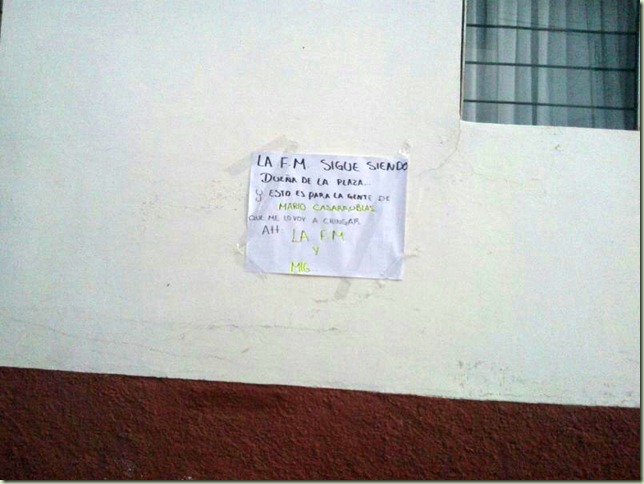 LA F.M SIGUE SIENDO
DUEÑA DE LA PLAZA...
Y ESTO ES PARA LA GENTE DE
MARIO CASARRUBIAS
QUE ME LO VOY A CHINGAR
Att LA F.M.
Y
MIG